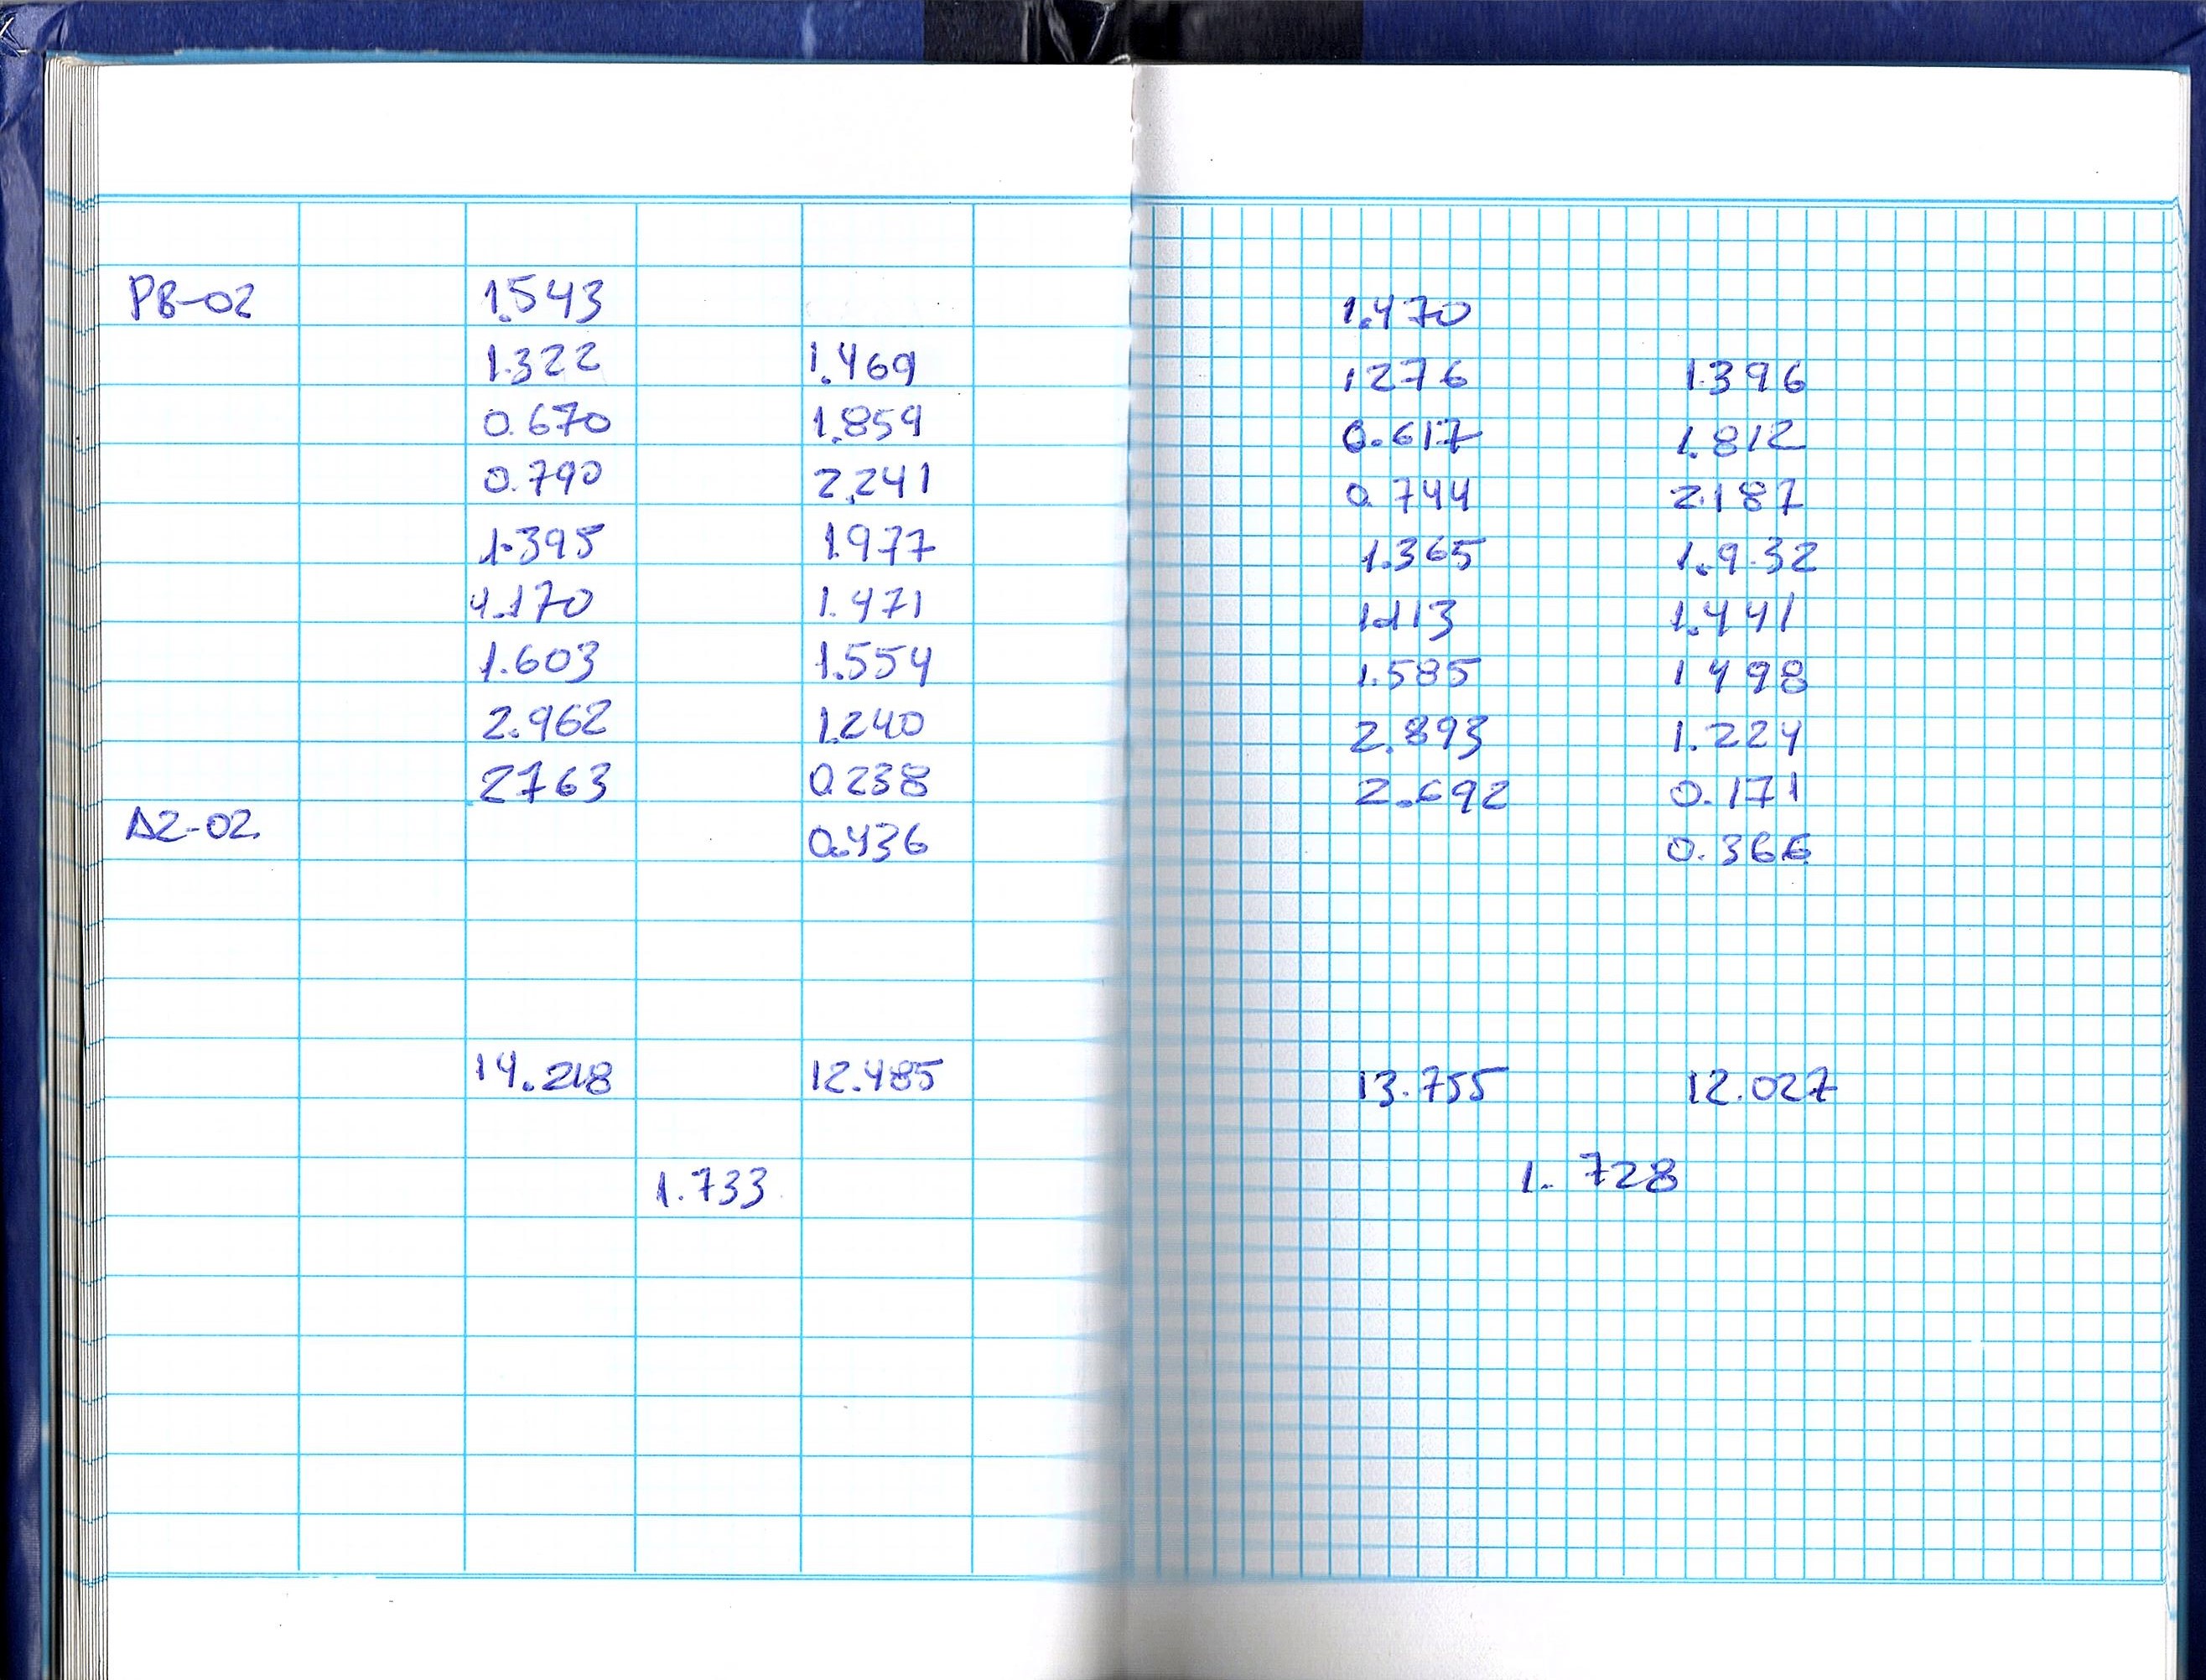 PB-02 1.543
1.322 1.469
0.670 1.859
0.790 2.241
1.395 1.977
1.170 1.471
1.603 1.554
2.962 1.240
2763 0.238
A2-02 0.436
14.218 12.485
1.733
1.470
1276 1.396
0.617 1.812
0.744 2.187
1.365 1.9.32
1.113 1.441
1.585 1498
2.893 1.224
2.692 0.171
0.366
13.755 12.027
1. 728